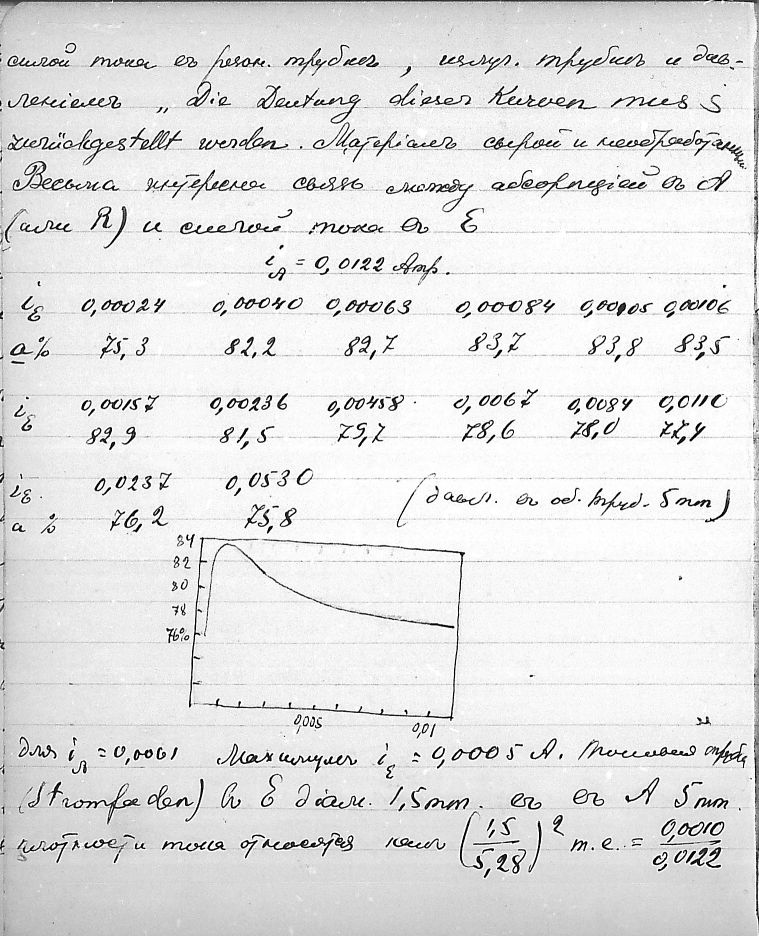 силой тока въ резон. трубкѣ, излуч. трубкѣ и дав-
леніемъ „Die Deutung dieser Kurven muss
zurückgestellt werden. Матеріалъ сырой и необработанный
Весьма интересна связь между абсорпціей въ A
(или R) и силой тока въ E
i_A = 0,0122 Amp.
i_E 0,00024 0,00040 0,00063 0,00084 0,00105 0,00106
a% 75,3 82,2 82,7 83,7 83,8 83,5
i_E 0,00157 0,00236 0,00458 0,0067 0,0084 0,0110
82,9 81,5 79,7 78,6 78,0 77,4
i_E 0,0237 0,0530
a % 76,2 75,8 (давл. въ об. труб. 5mm)
84
82
80
78
76%
0,005 0,01
Для i_A = 0,0061 Максимумъ i_E = 0,0005 A.
(Stromfaden) въ E діам. 1,5mm. въ A 5mm.
плотности тока относятся какъ (1,5/5,28)² т.е. = 0,0010/0,0122